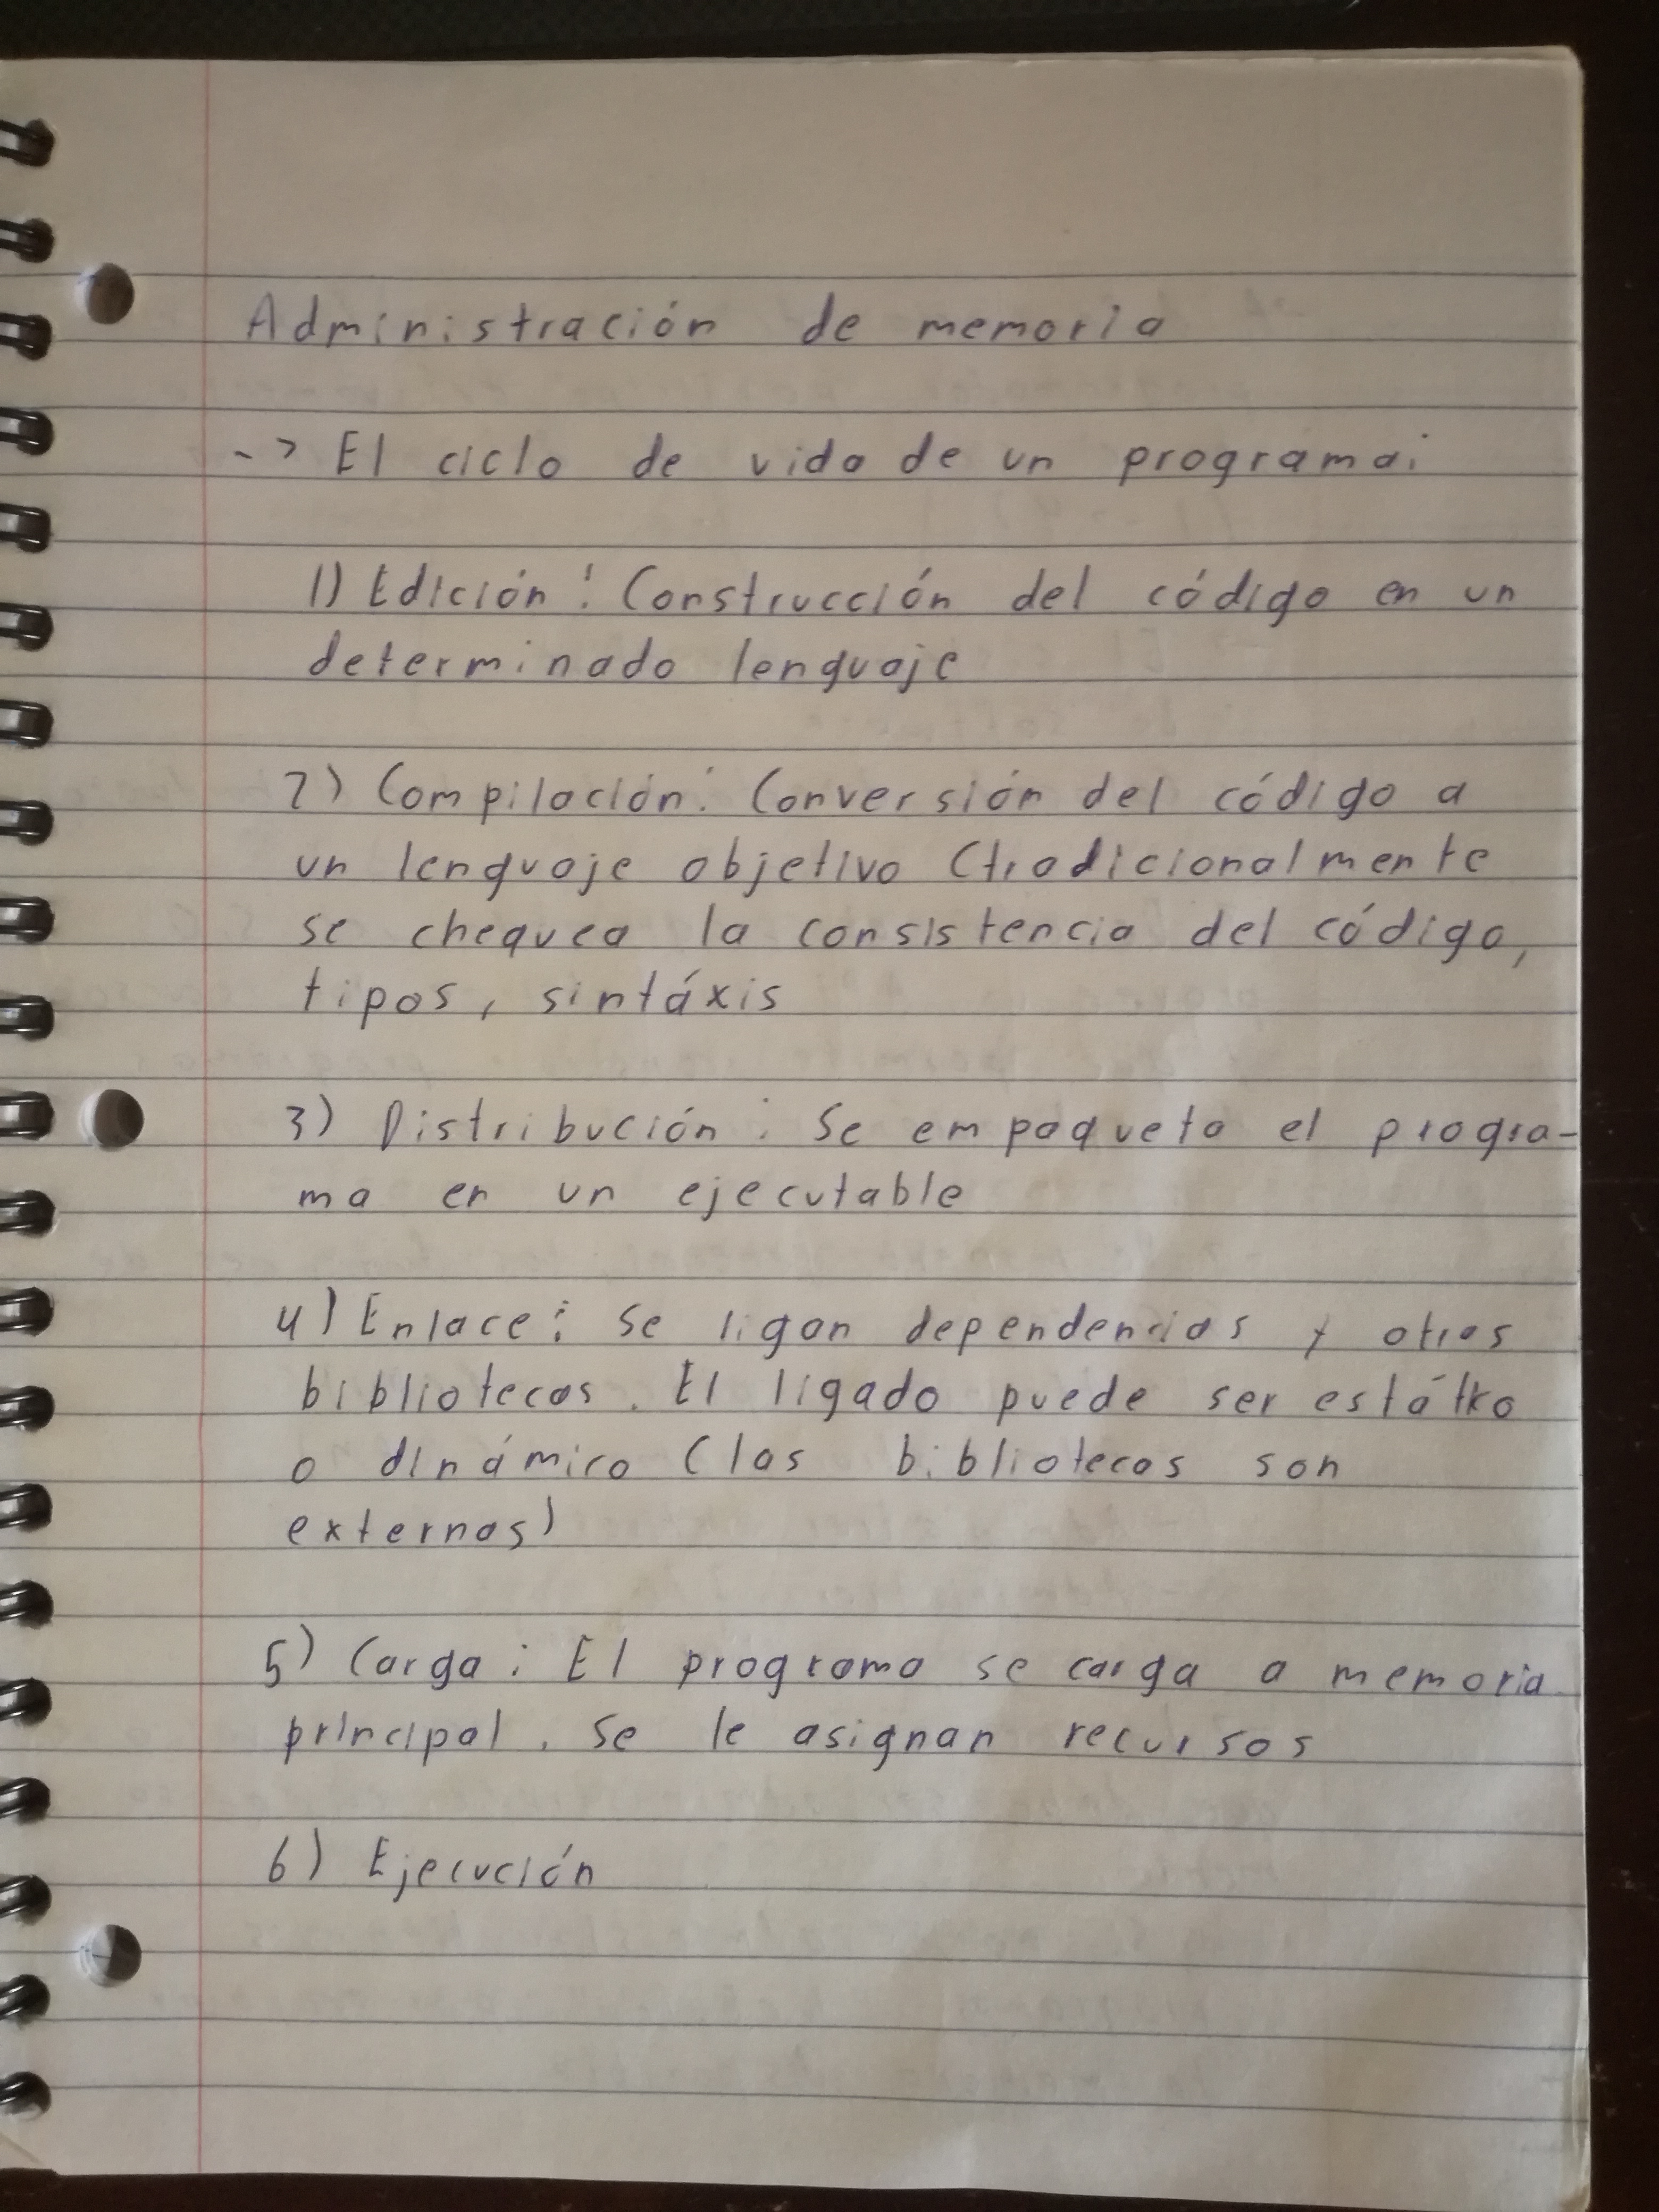 Administración de memoria
-> El ciclo de vida de un programa:
1) Edición: Construcción del código en un
determinado lenguaje
2) Compilación: Conversión del código a
un lenguaje objetivo (tradicionalmente
se chequea la consistencia del código,
tipos, sintáxis
3) Distribución: Se empaqueta el progra-
ma en un ejecutable
4) Enlace: Se ligan dependencias y otras
bibliotecas. El ligado puede ser estátko
o dinámico (las bibliotecas son
externas)
5) Carga: El programa se carga a memoria
principal. Se le asignan recursos
6) Ejecución